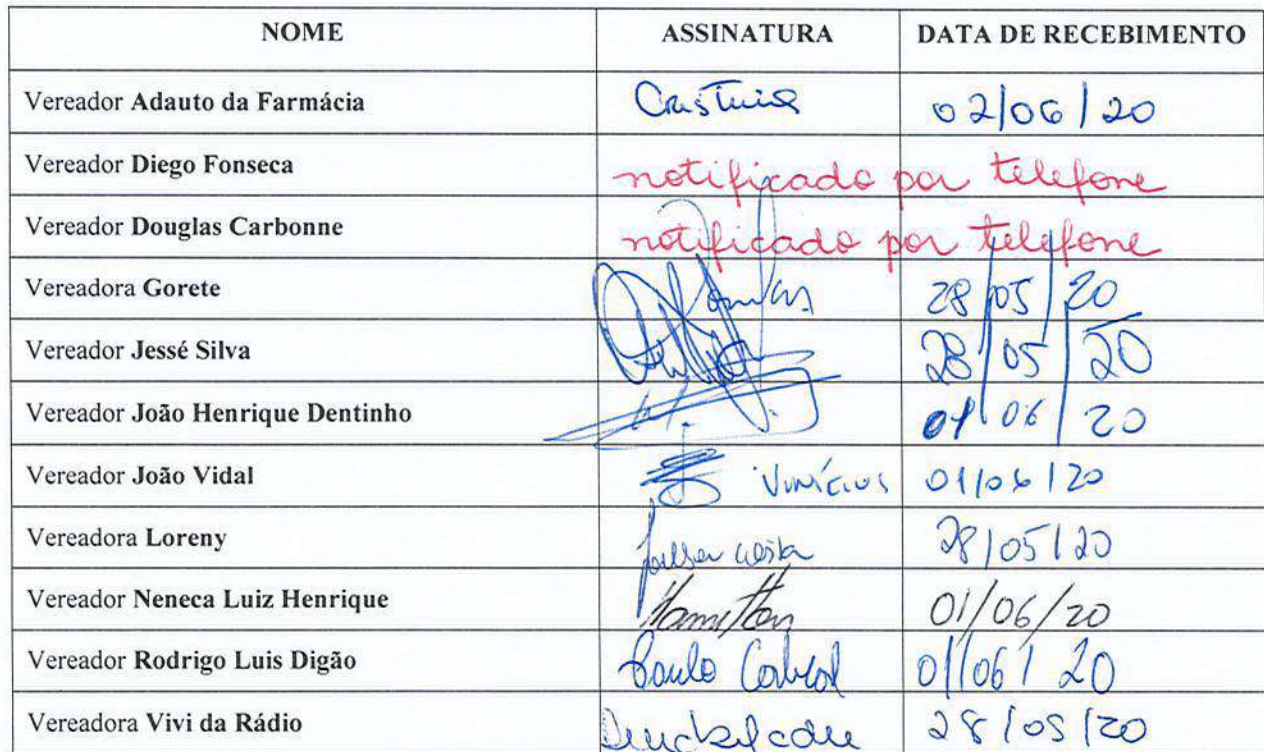 NOME ASSINATURA DATA DE RECEBIMENTO
Vereador Adauto da Farmácia 02/06/20
Vereador Diego Fonseca notificado por telefone
Vereador Douglas Carbonne notificado por telefone
Vereadora Gorete 28/05/20
Vereador Jessé Silva 28/05/20
Vereador João Henrique Dentinho 01/06/20
Vereador João Vidal Vinícius 01/06/20
Vereadora Loreny 28/05/20
Vereador Neneca Luiz Henrique Hamilton 01/06/20
Vereador Rodrigo Luis Digão Paulo Cabral 01/06/20
Vereadora Vivi da Rádio 28/05/20